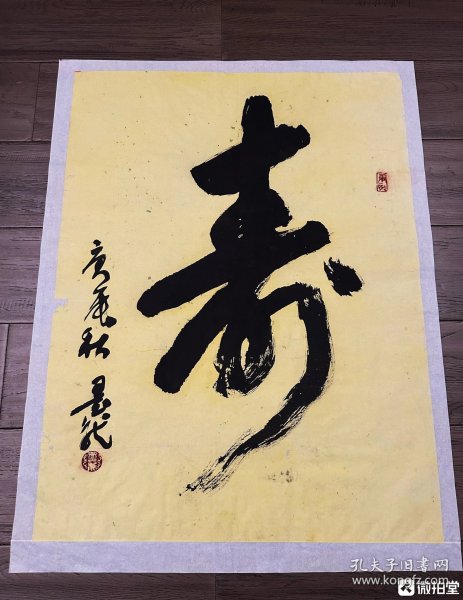 寿
庚辰秋 墨龙
孔夫子旧书网
www.kongfz.com
微拍堂